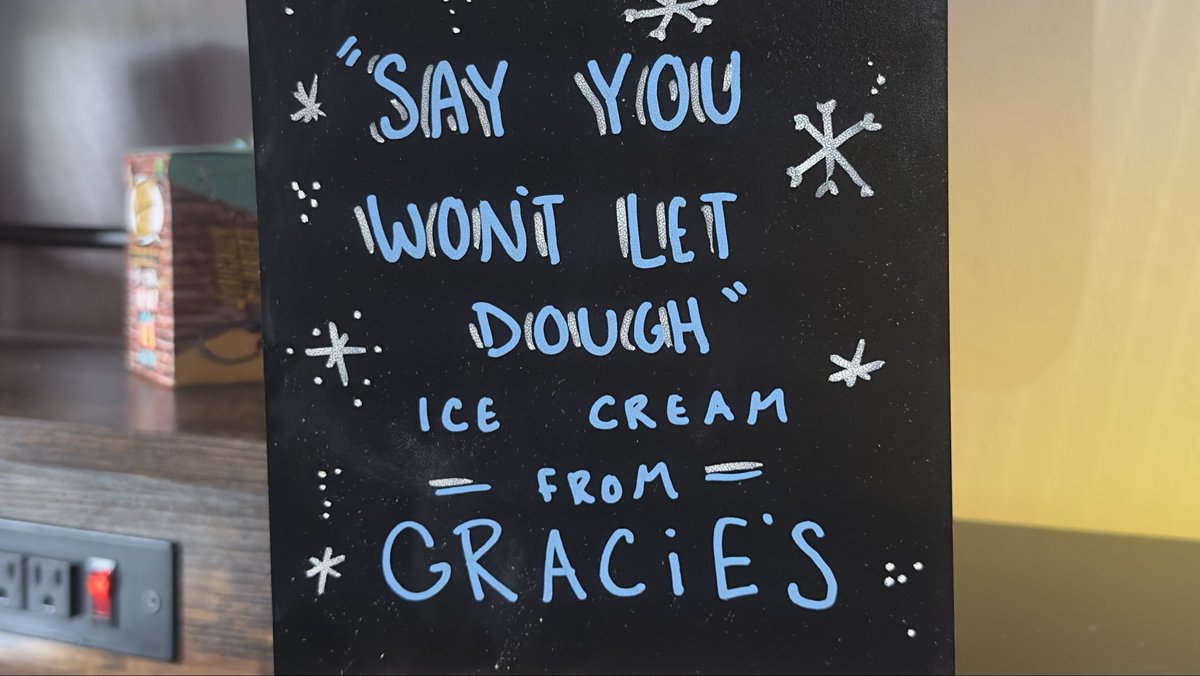 "SAY YOU
WON'T LET
DOUGH"
ICE CREAM
— FROM —
GRACIE'S